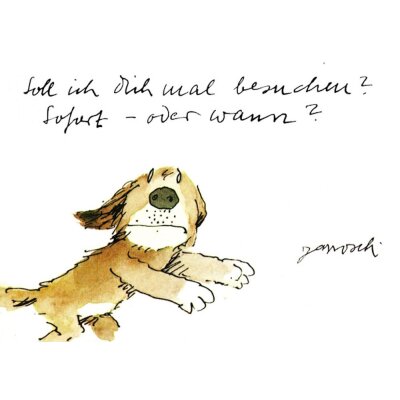 Soll ich dich mal besuchen?
Sofort – oder wann?
janosch